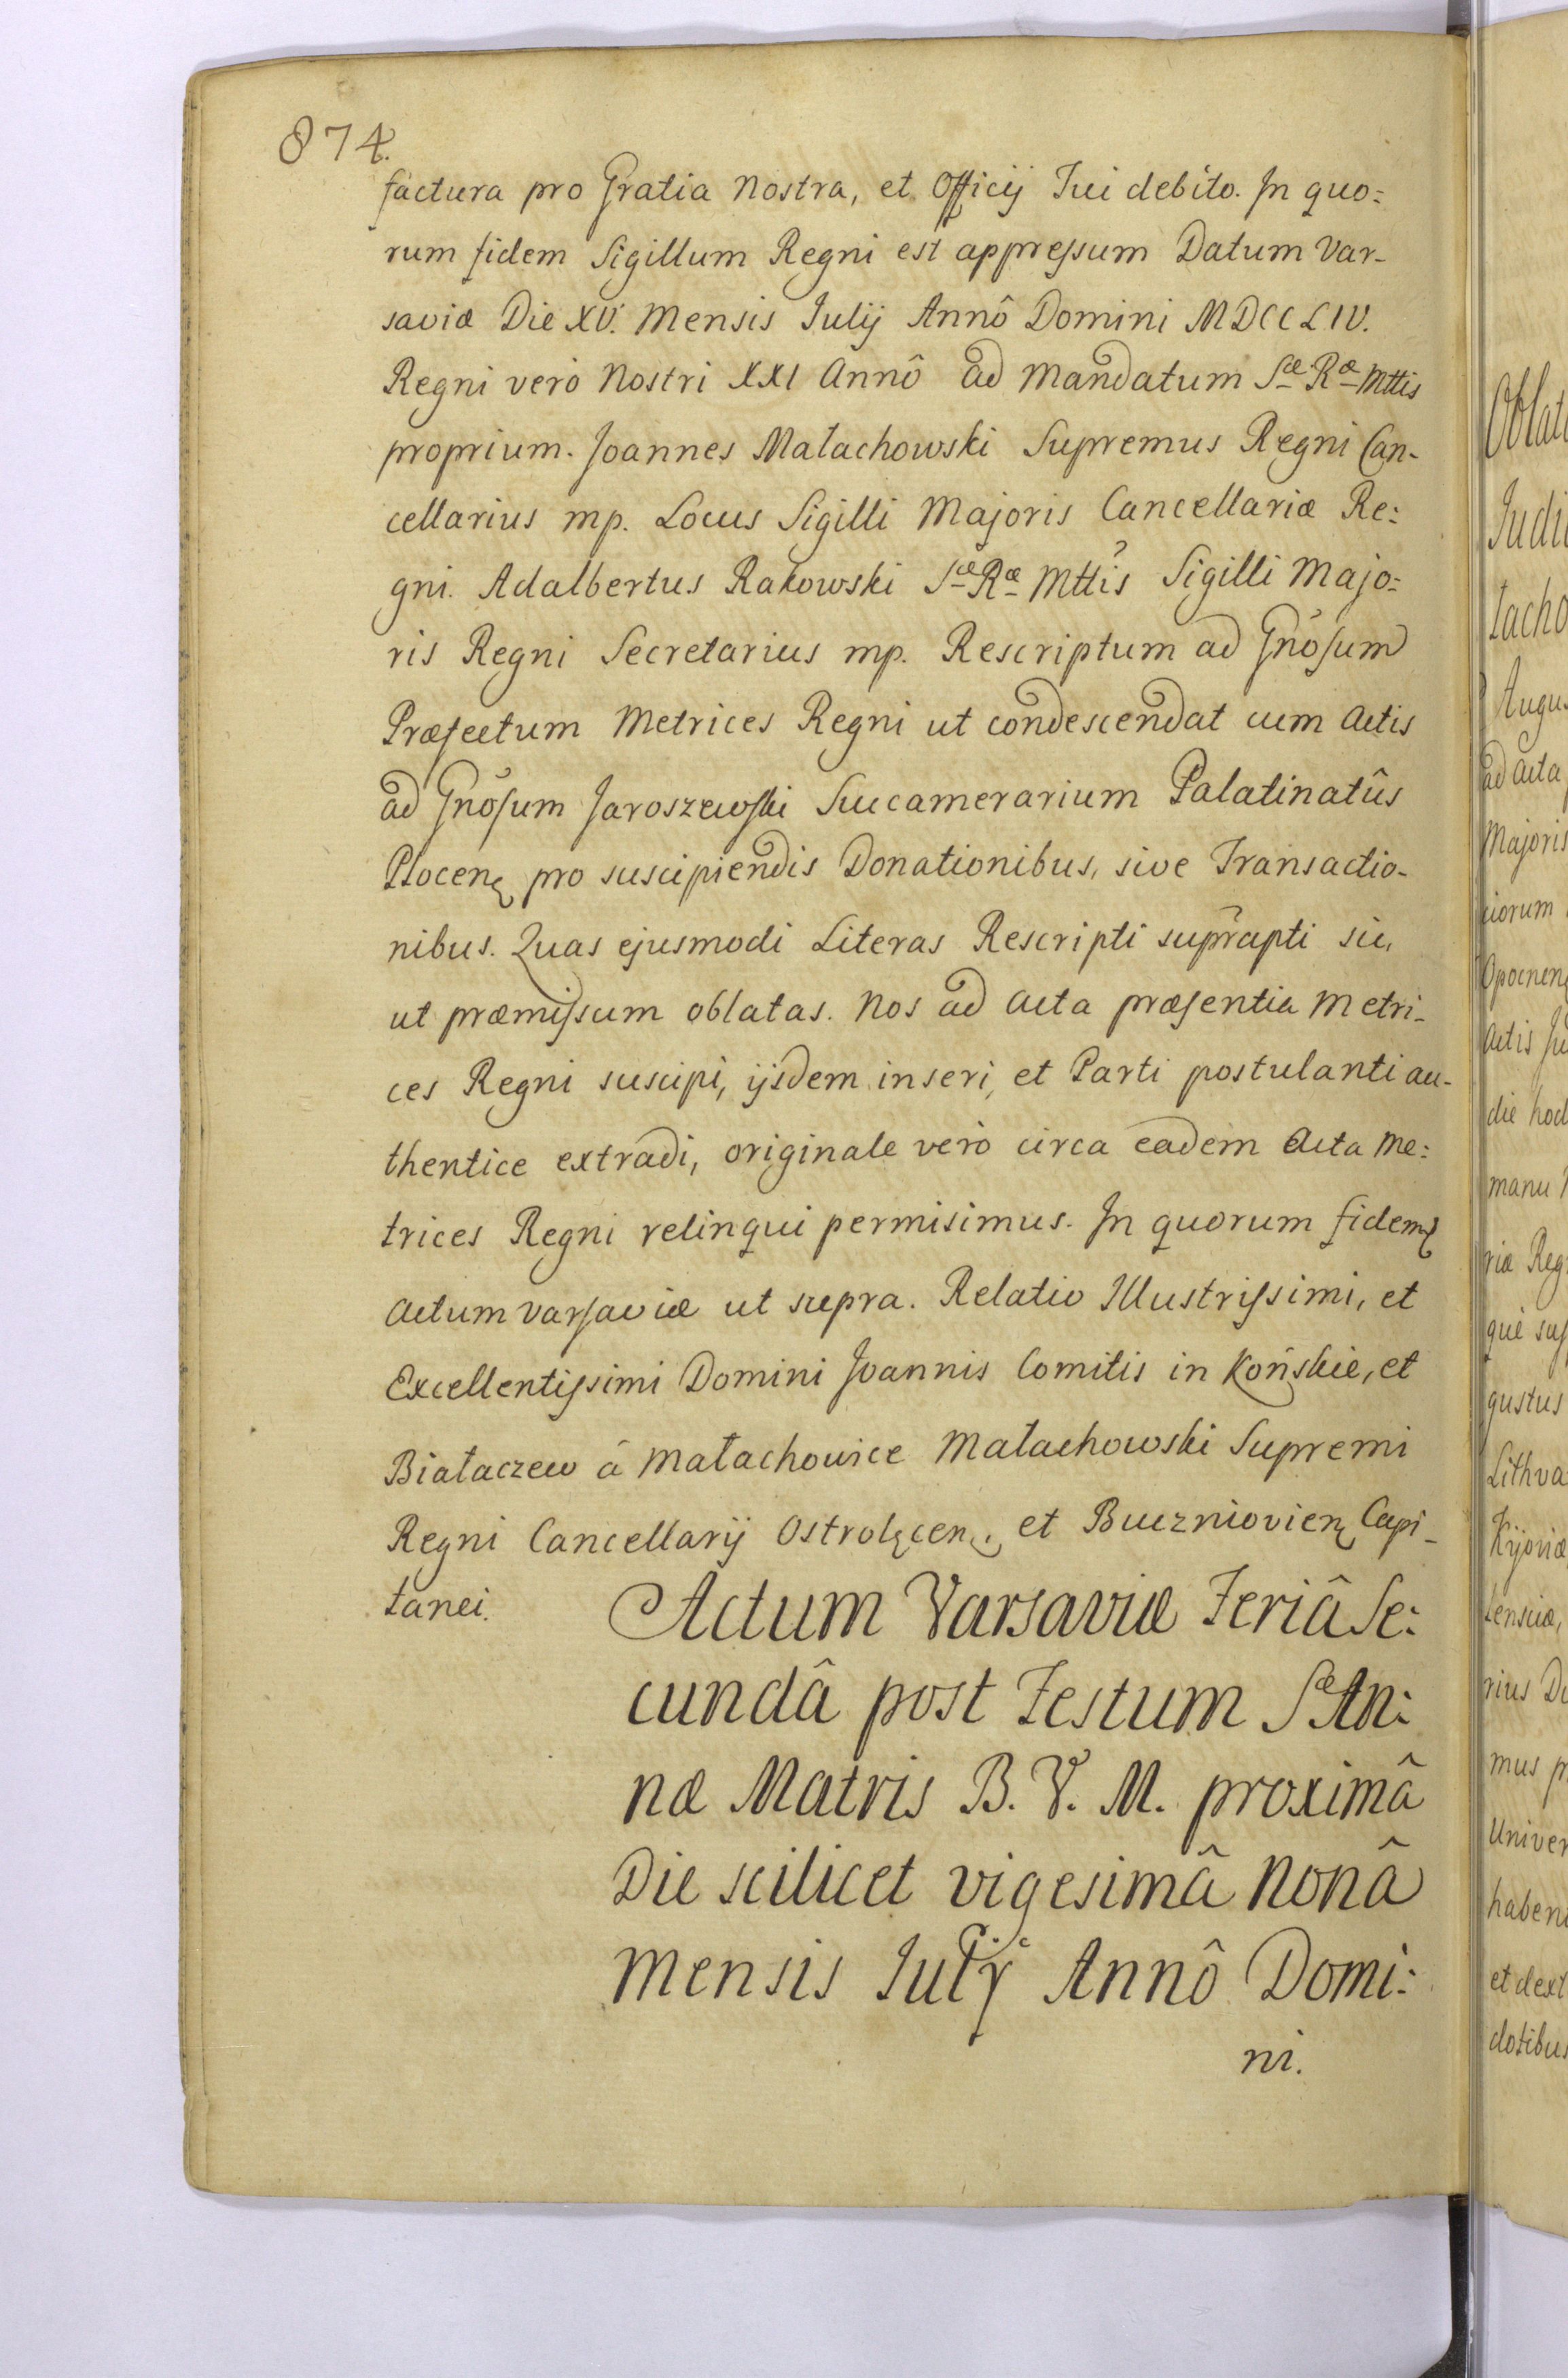 874.
factura pro Gratia Nostra, et Officij Sui debito. In quo:
rum fidem Sigillum Regni est appressum Datum Var-
saviæ Die XV. Mensis Julij Annô Domini MDCCLIV.
Regni verò Nostri XXI Annô ad Mandatum Sæ Ræ Mttis
proprium. Joannes Małachowski Supremus Regni Can-
cellarius mp. Locus Sigilli Majoris Cancellariæ Re:
gni. Adalbertus Rakowski Sæ Ræ Mttis Sigilli Majo:
ris Regni Secretarius mp. Rescriptum ad Gnosum
Præfectum Metrices Regni ut condescendat cum Actis
ad Gnosum Jaroszewski Succamerarium Palatinatûs
Płocen pro suscipiendis Donationibus, sive Transactio-
nibus. Quas ejusmodi Literas Rescripti suprapti sic,
ut præmissum oblatas. Nos ad Acta præsentia Metri-
ces Regni suscipi, ijsdem inseri, et Parti postulanti au-
thentice extradi, originale verò circa eadem Acta Me:
trices Regni relinqui permisimus. In quorum fidem
Actum Varsaviæ ut supra. Relatio Illustrissimi, et
Excellentissimi Domini Joannis Comitis in Końskie, et
Białaczew à Małachowice Małachowski Supremi
Regni Cancellarij Ostrołęcen. et Buczniovien Capi-
tanei.
Actum Varsaviæ Feriâ Se:
cundâ post Festum Sæ An:
næ Matris B. V. M. proximâ
Die scilicet vigesimâ Nonâ
Mensis Julij Annô Domi:
ni.